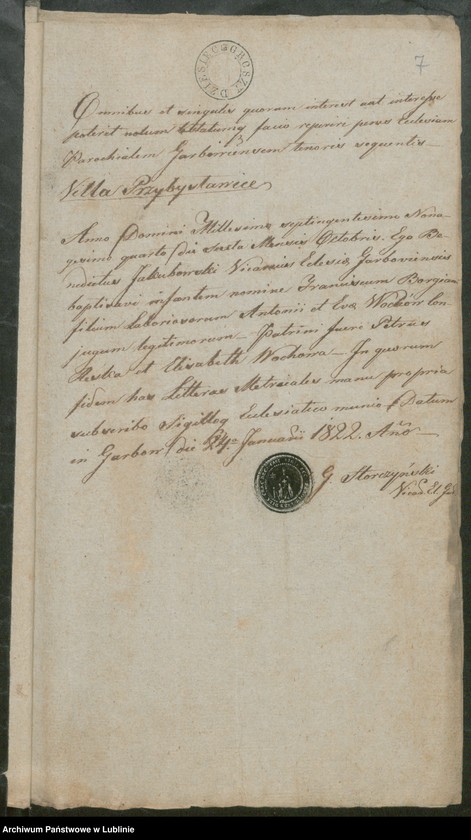 DZIESIĘĆ GROSZY
7
Omnibus et singulis quorum interest aut interesse
poterit notum facio reperiri penes Eclesiam
Parochialem Garboviensem tenoris sequentis
Villa Przybysławice
Anno Domini Millesimo septingentesimo Nona-
gesimo quarto die sexta Mensis Octobris. Ego Be-
nedictus Jakubowski Vicarius Eclesiæ Garboviensis
baptisavi infantem nomine Franciscum Borgiam
filium Laboriosorum Antonii et Evæ Wachow Con-
jugum legitimorum — Patrini fuere Petrus
et Elisabeth Wachowa — In quorum
fidem has Litteras Metricales manu propria
subscribo Sigilloq Eclesiatico munio Datum
in Garbow die 24 Januarii 1822 Año
G Storczyński
Archiwum Państwowe w Lublinie